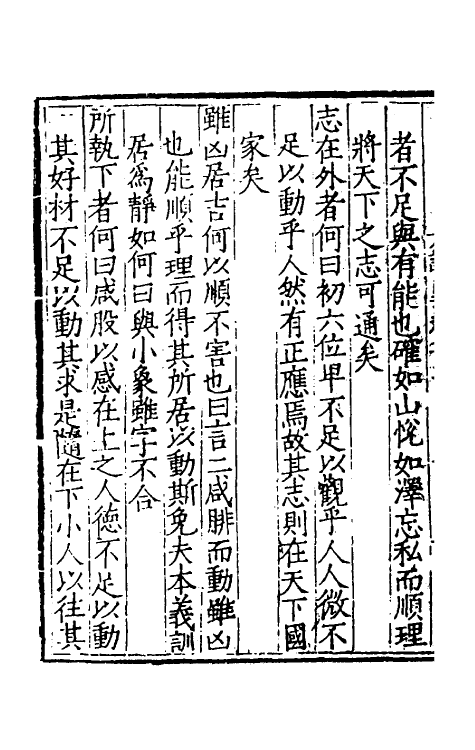 者不足與有能也確如山悅如澤忘私而順理
將天下之志可通矣
志在外者何曰初六位早不足以觀乎人人微不
足以動乎人然有正應焉故其志則在天下國
家矣
雖凶居吉何以順不害也曰言二咸腓而動雖凶
也能順乎理而得其所居以動斯免夫本義訓
居爲靜如何曰與小象雖字不合
所執下者何曰咸股以感在上之人德不足以動
其好材不足以動其求是隨在下小人以往其